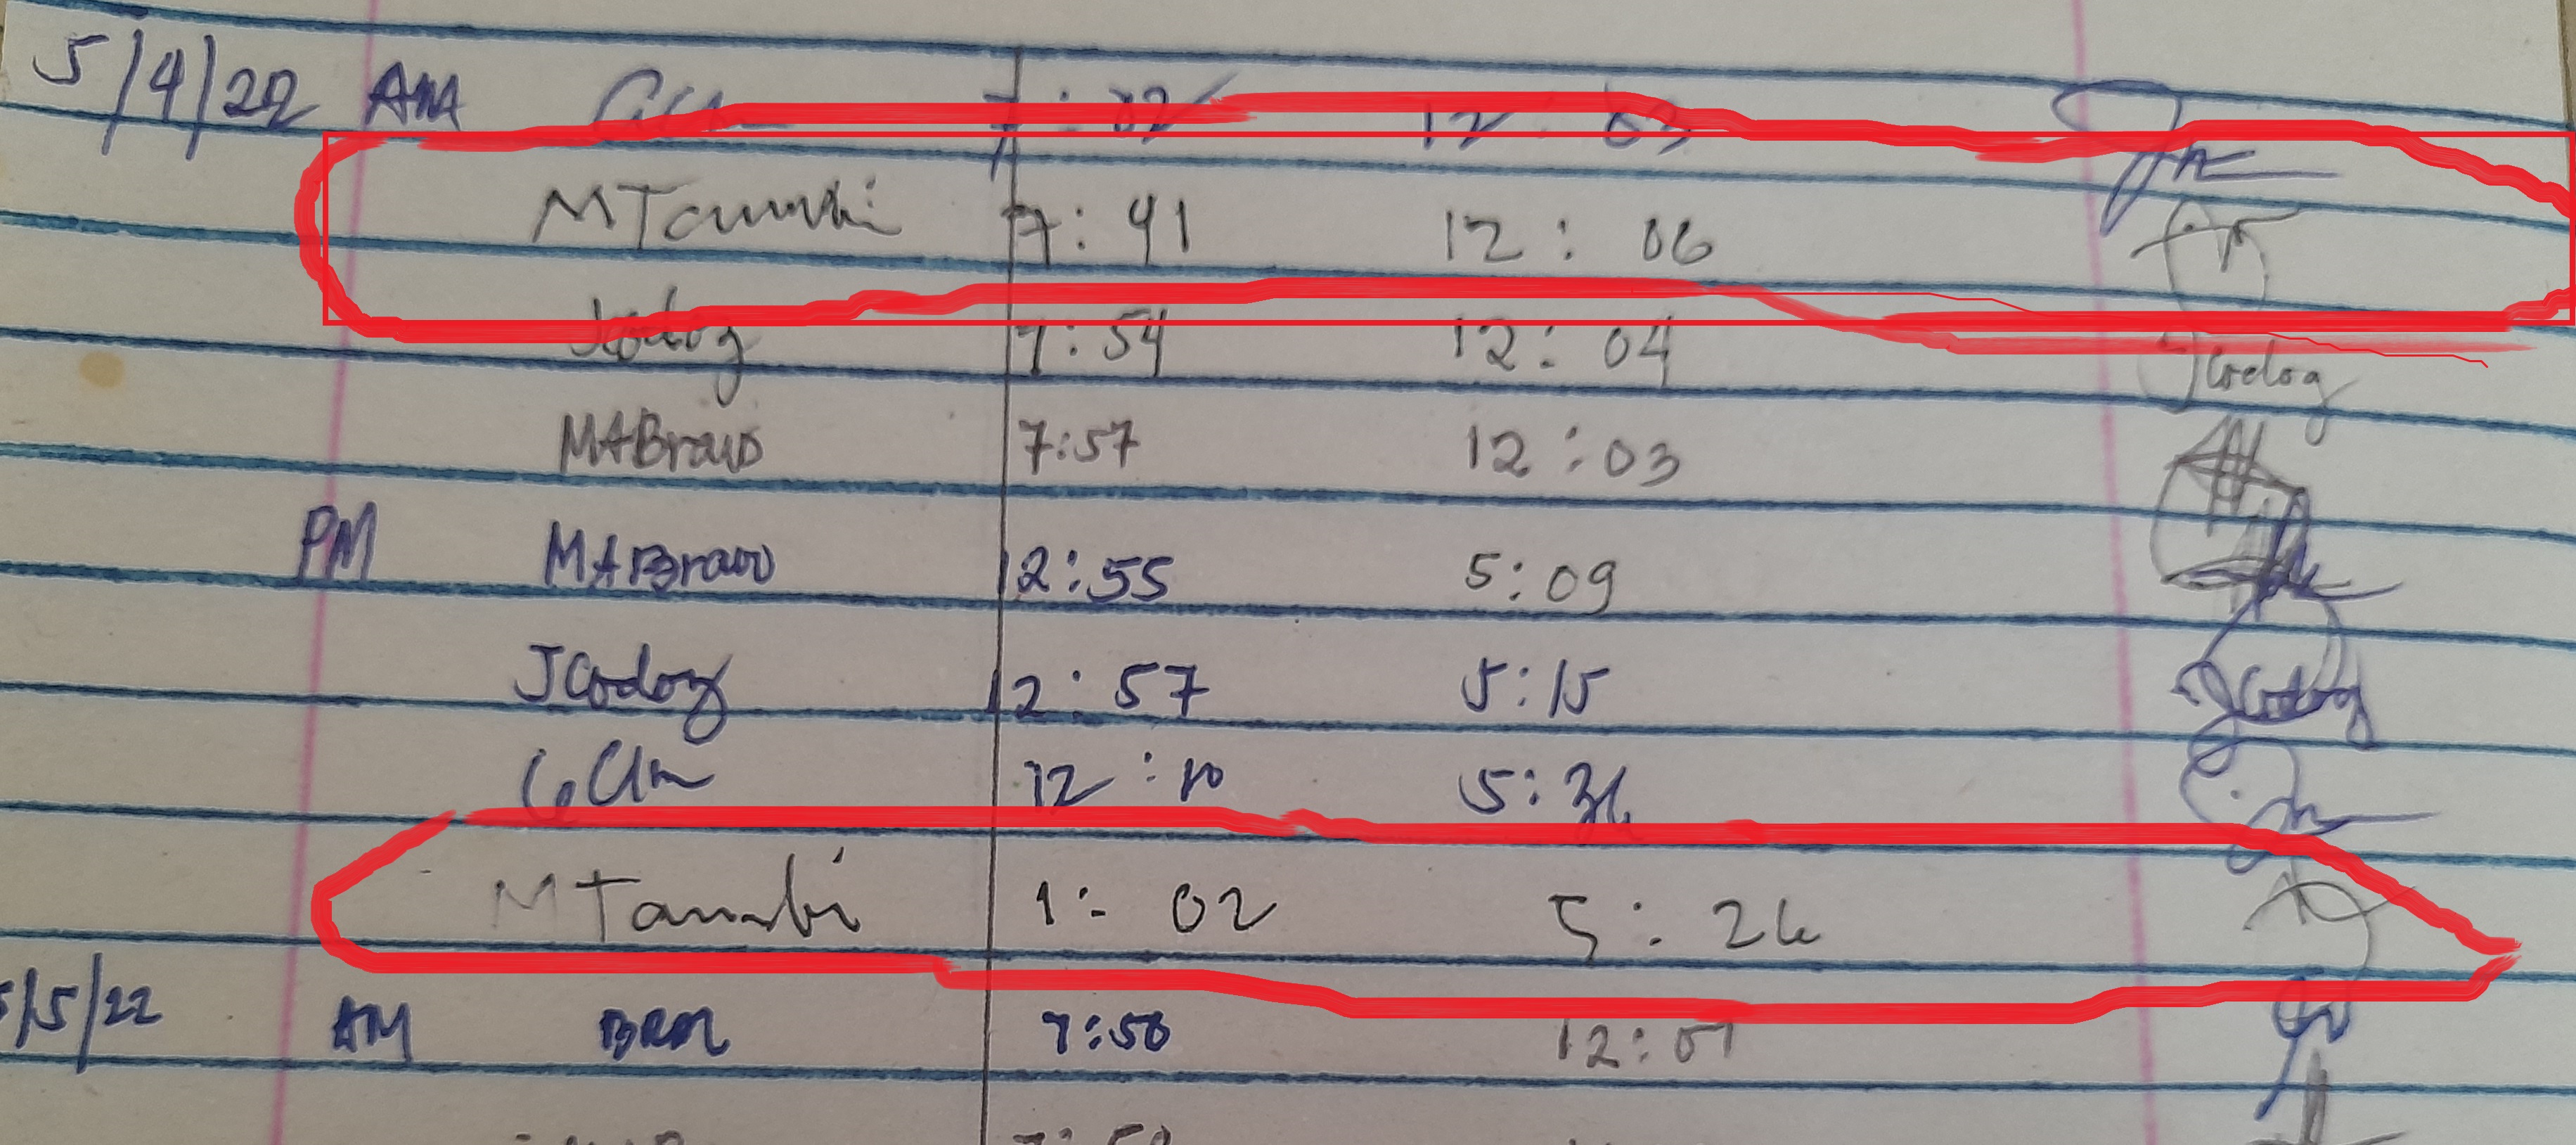 5/4/22 AM 7:02 12:03
MTanabi 7:41 12:06
JCodog 7:54 12:04 JCodog
MABravo 7:57 12:03
PM MABravo 12:55 5:09
JCodog 12:57 5:15 JCodog
12:10 5:36
MTanabi 1:02 5:26
5/5/22 AM BRM 7:50 12:01